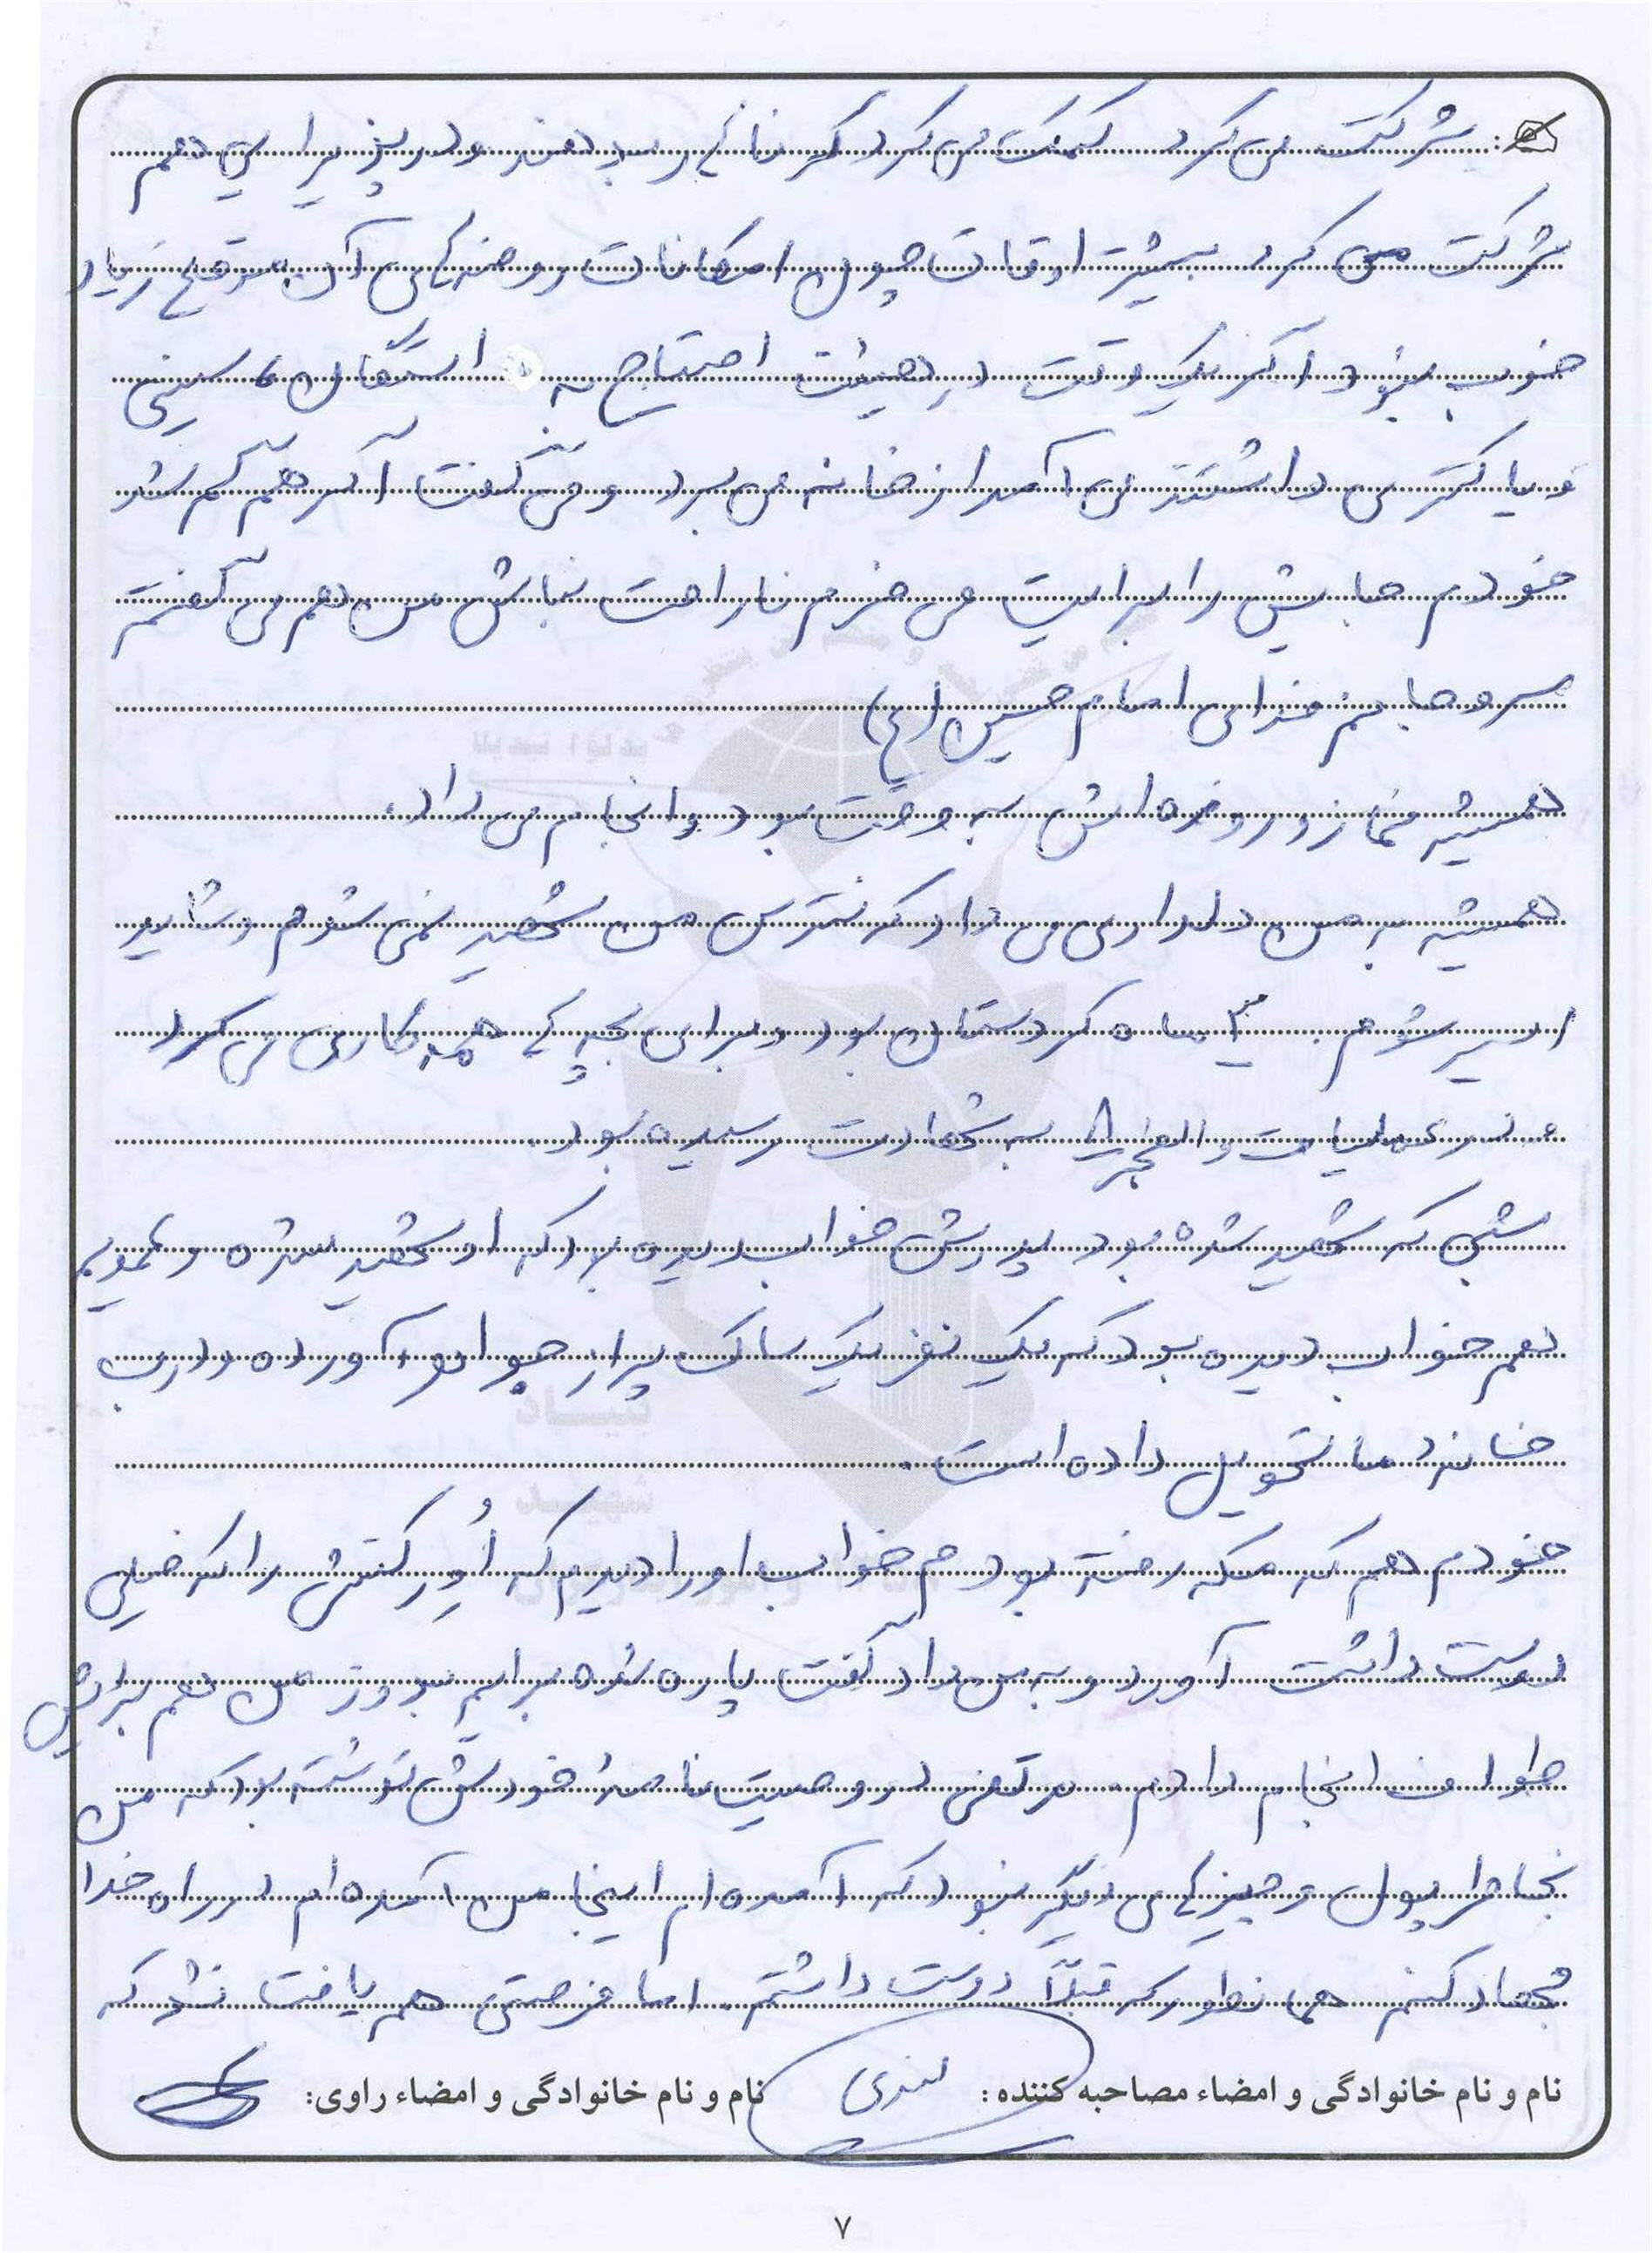 شرکت می کرد کمک می کرد که نا را بدهند ودر پذیرایی هم
شرکت می کرد بیشتر اوقات چون امکانات روضه های آن موقع زیاد
خوب نبود اگر یک وقت در هیئت احتیاج به استکان، سینی
و یا کتری داشتند می آمد از خانه می برد و می گفت اگر هم گم شد
خودم جایش را برایت می خرم ناراحت نباش من هم می گفتم
سرو جانم فدای امام حسین (ع)
همیشه نماز و روزه اش به وقت بود و انجام می داد.
همیشه به من دلداری می داد که نترس من شهید نمی شوم و شاید
اسیر شوم. ۳ ماه کردستان بود و برای بچه ها همه کاری می کرد
و در عملیات والفجر ۸ به شهادت رسیده بود.
شبی که شهید شده بود پدرش خواب دیده بود که او شهید شده و عمویم
هم خواب دیده بود که یک نفر یک ساک پر از آورده و درب
خانه ما تحویل داده است.
خودم هم که مکه رفته بودم خواب او را دیدم که اُوِرکتش را که خیلی
دوست داشت آورد و به من داد گفت پاره شده برایم بدوز من هم برایش
طواف انجام دادم. مرتضی در وصیت نامۀ خودش نوشته بود که من
بخاطر پول و چیزهای دیگر نبود که آمده ام اینجا من آمده ام در راه خدا
جهاد کنم همانطور که قبلاً دوست داشتم. اما فرصتی هم یافت نشد که
نام و نام خانوادگی و امضاء مصاحبه کننده: نام و نام خانوادگی و امضاء راوی:
۷